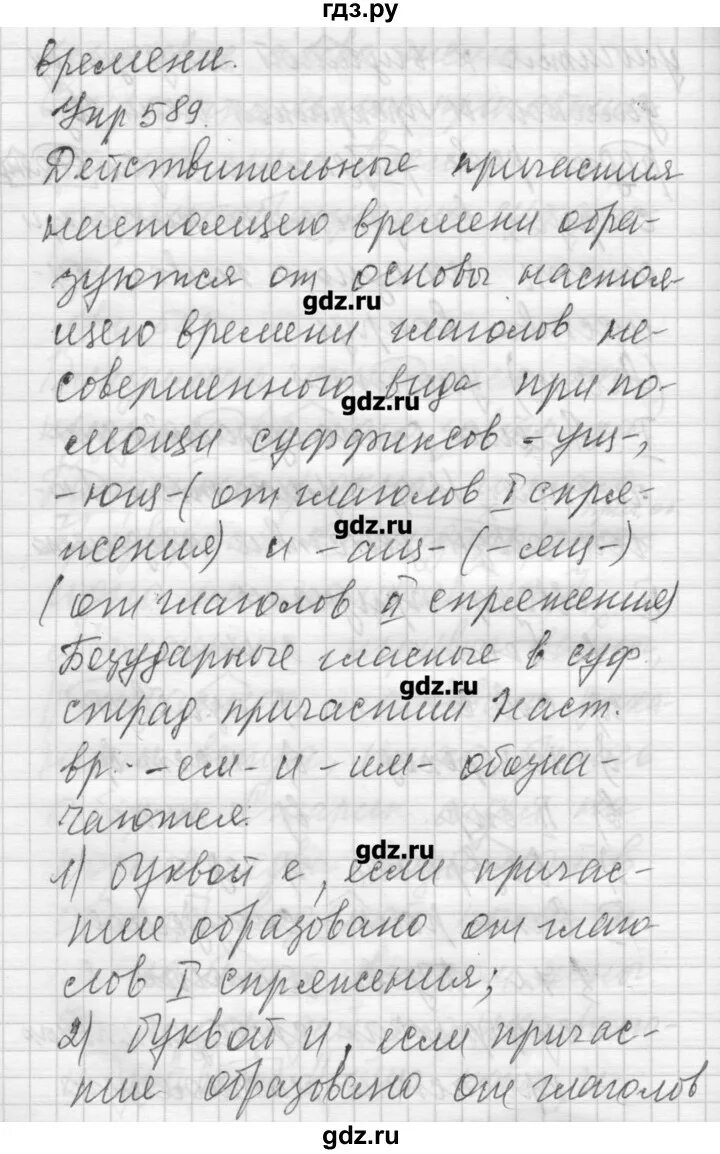 гдз.ру
времени.
Упр 589.
Действительные причастия
настоящего времени обра-
зуются от основы настоя-
gdz.ru
щего времени глаголов не-
совершенного вида при по-
gdz.ru
мощи суффиксов -ущ-,
-ющ- (от глаголов I спря-
gdz.ru
жения) и -ащ- (-ящ-)
(от глаголов II спряжения)
Безударные гласные в суф.
gdz.ru
страд. причастий наст.
вр. -ем- и -им- обозна-
чаются:
gdz.ru
1) буквой е, если причас-
тие образовано от глаго
лов I спряжения;
2) буквой и, если причас-
тие образовано от глаголов
gdz.ru